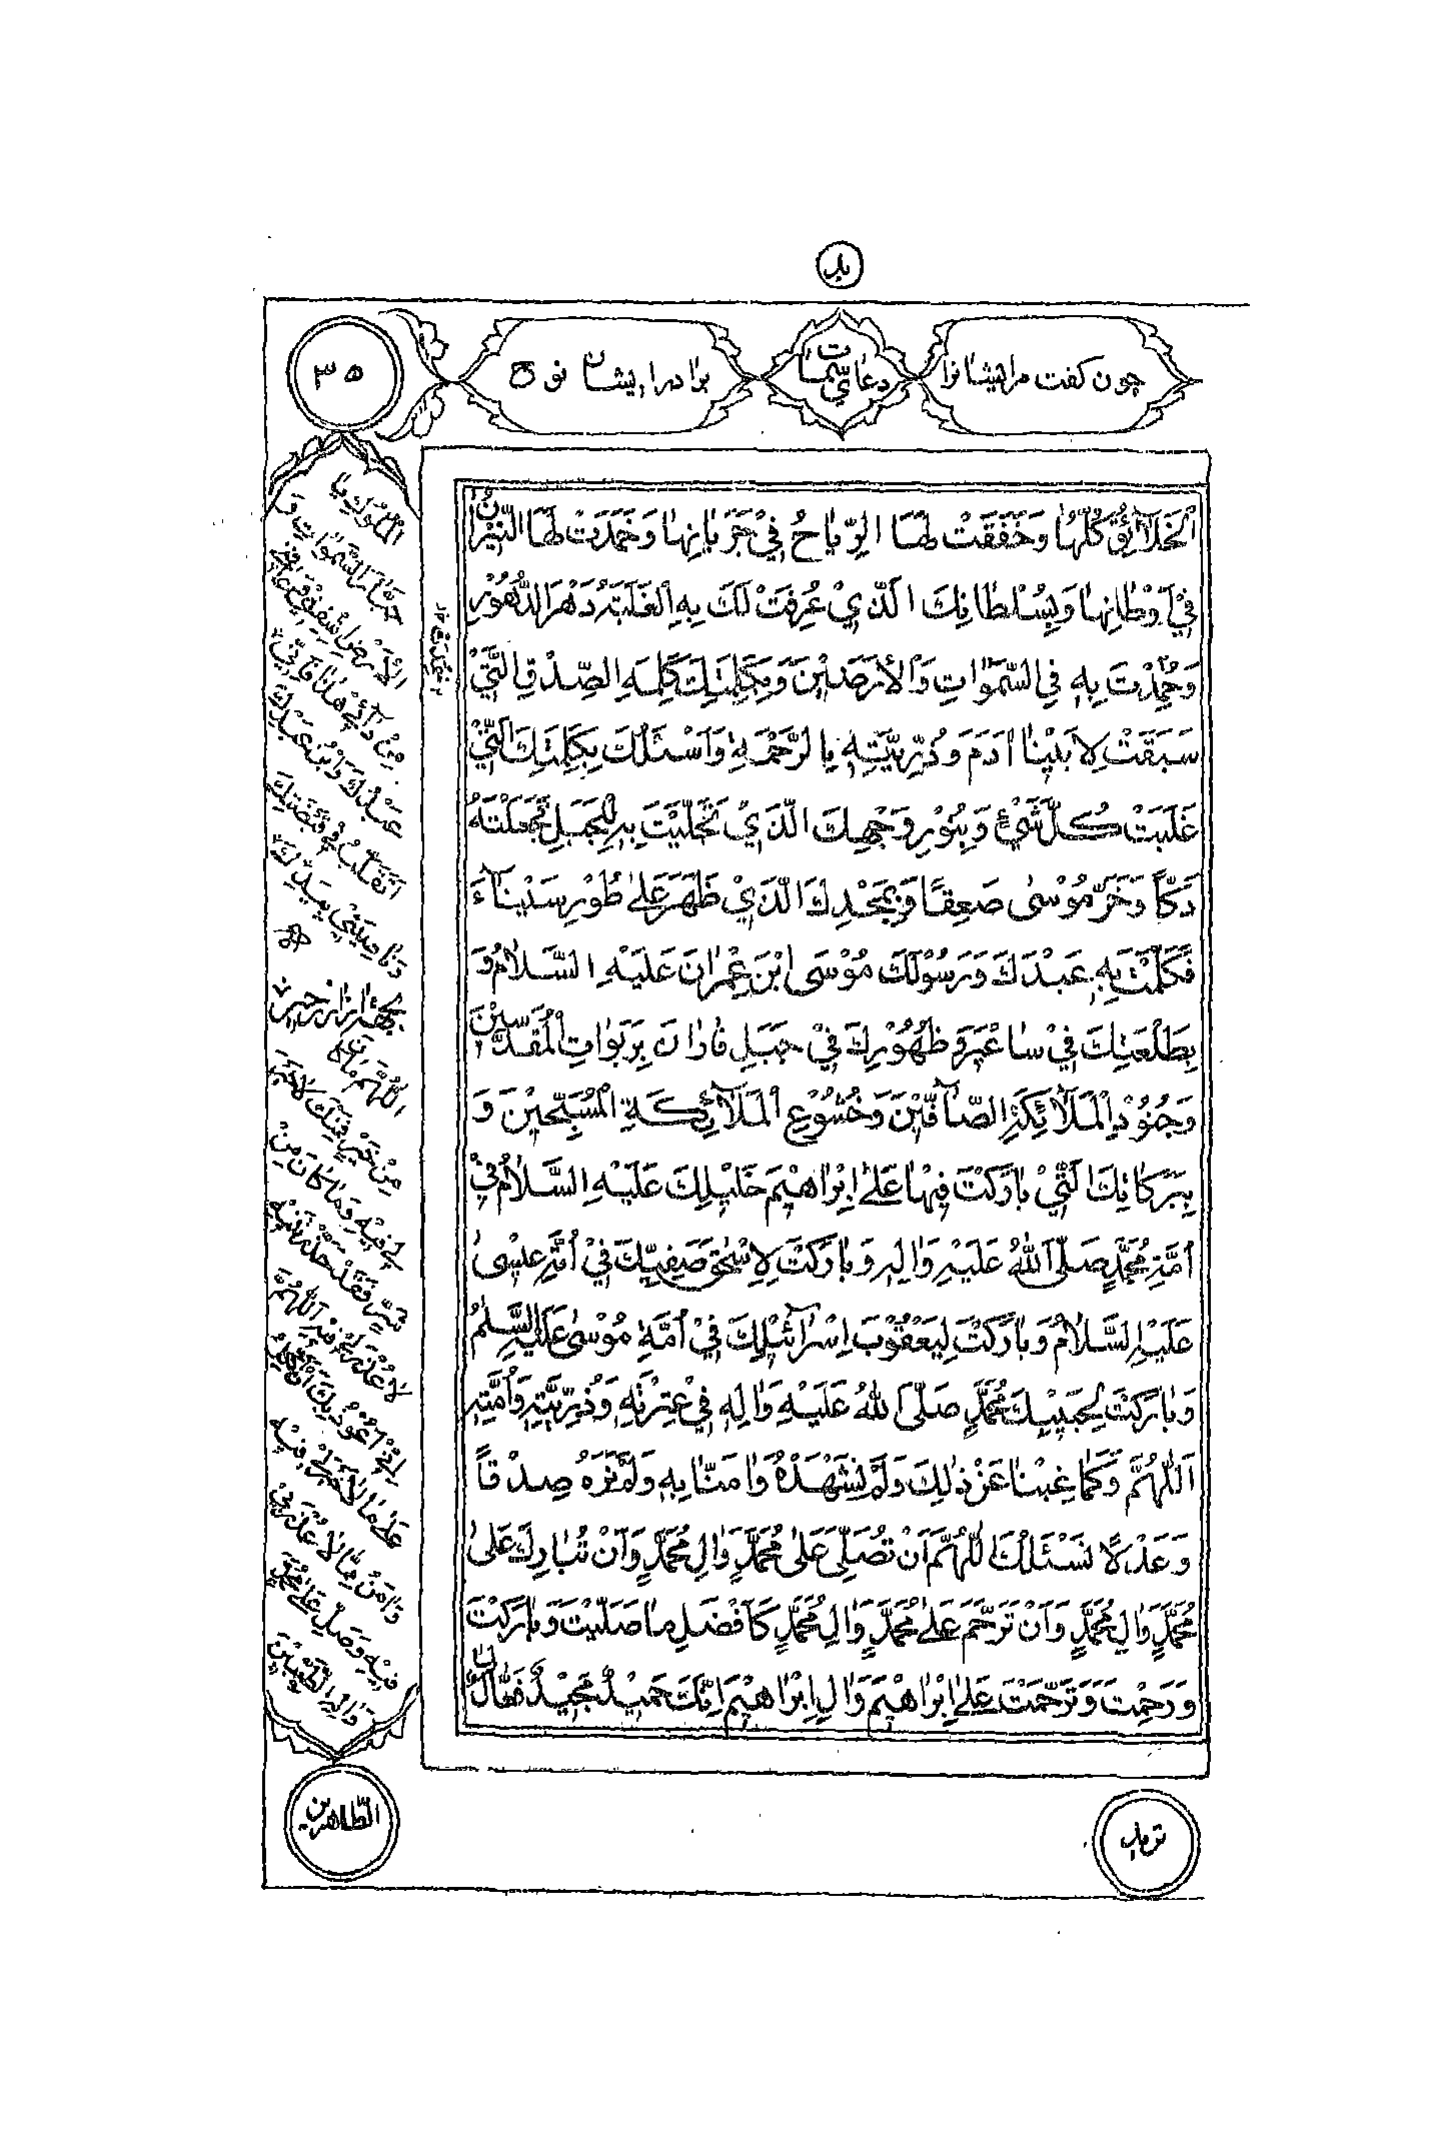 چون كفت مرايشانرا
دعای سمات
برادر ايشان نوح
٣٥
اَلْخَلاۤئِقُ كُلُّهٰا وَخَفَقَتْ لَهَا الرِّيٰاحُ فِيْ جَرَيٰانِهٰا وَخَمَدَتْ لَهَا النّيْرٰانُ
فِيْ اَوْطٰانِهٰا وَبِسُلْطٰانِكَ الَّذِيْ عُرِفَتْ لَكَ بِهِ الْغَلَبَةُ دَهْرَ الدُّهُوْرِ
وَحُمِدْتَ بِهِ فِي السَّمٰوٰاتِ وَالْاَرَضَيْنَ وَبِكَلِمَتِكَ كَلِمَةِ الصِّدْقِ الَّتِيْ
سَبَقَتْ لِاَبَيْنٰا اٰدَمَ وَذُرِّيَّتِهِ بِالرَّحْمَةِ وَاَسْئَلُكَ بِكَلِمَتِكَ الَّتِيْ
غَلَبَتْ كُلَّ شَيْئٍ وَبِنُوْرِ وَجْهِكَ الَّذِيْ تَجَلَّيْتَ بِهِ لِلْجَبَلِ فَجَعَلْتَهُ
دَكّاً وَخَرَّ مُوْسٰى صَعِقًا وَبِمَجْدِكَ الَّذِيْ ظَهَرَ عَلٰى طُوْرِ سَيْنٰاۤءَ
فَكَلَّمْتَ بِهِ عَبْدَكَ وَرَسُوْلَكَ مُوْسَى ابْنَ عِمْرٰانَ عَلَيْهِ السَّلٰامُ وَ
بِطَلْعَتِكَ فِيْ سٰاعِيْرَ وَظُهُوْرِكَ فِيْ جَبَلِ فٰارٰانَ بِرَبَوٰاتِ الْمُقَدَّسِيْنَ
وَجُنُوْدِ الْمَلاۤئِكَةِ الصّٰاۤفِّيْنَ وَخُشُوْعِ الْمَلاۤئِكَةِ الْمُسَبِّحِيْنَ وَ
بِبَرَكٰاتِكَ الَّتِيْ بٰارَكْتَ فِيْهٰا عَلٰى اِبْرٰاهِيْمَ خَلِيْلِكَ عَلَيْهِ السَّلٰامُ فِيْ
اُمَّةِ مُحَمَّدٍ صَلَّى اللّٰهُ عَلَيْهِ وَاٰلِهِ وَبٰارَكْتَ لِاِسْحٰقَ صَفِيِّكَ فِيْ اُمَّةِ عِيْسٰى
عَلَيْهِ السَّلٰامُ وَبٰارَكْتَ لِيَعْقُوْبَ اِسْرٰاۤئِيْلِكَ فِيْ اُمَّةِ مُوْسٰى عَلَيْهِ السَّلٰمُ
وَبٰارَكْتَ لِحَبِيْبِكَ مُحَمَّدٍ صَلَّى اللّٰهُ عَلَيْهِ وَاٰلِهِ فِيْ عِتْرَتِهِ وَذُرِّيَّتِهِ وَاُمَّتِهِ
اَللّٰهُمَّ وَكَمٰا غِبْنٰا عَنْ ذٰلِكَ وَلَمْ نَشْهَدْهُ وَاٰمَنّٰا بِهِ وَلَمْ نَرَهُ صِدْقاً
وَعَدْلاً نَسْئَلُكَ اللّٰهُمَّ اَنْ تُصَلِّيَ عَلٰى مُحَمَّدٍ وَاٰلِ مُحَمَّدٍ وَاَنْ تُبٰارِكَ عَلٰى
مُحَمَّدٍ وَاٰلِ مُحَمَّدٍ وَاَنْ تَرَحَّمَ عَلٰى مُحَمَّدٍ وَاٰلِ مُحَمَّدٍ كَاَفْضَلِ مٰا صَلَّيْتَ وَبٰارَكْتَ
وَرَحِمْتَ وَتَرَحَّمْتَ عَلٰى اِبْرٰاهِيْمَ وَاٰلِ اِبْرٰاهِيْمَ اِنَّكَ حَمِيْدٌ مَجِيْدٌ فَعّٰالٌ لِمٰا
جَبّٰارَ السَّمٰوٰاتِ وَ
عَبْدُكَ وَابْنُ عَبْدِكَ
اَتَقَلَّبُ فِيْ قَبْضَتِكَ
وَنٰاصِيَتِيْ بِيَدِكَ
اَللّٰهُمَّ مٰا كٰانَ
مِنْ خَيْرٍ
فِيْهِ وَمٰا كٰانَ مِنْ
شَرٍّ فَقَدْ حَذَّرْتَنِيْهِ
لاٰ عُذْرَ لِيْ فِيْهِ اَللّٰهُمَّ
اِنِّيْ اَعُوْذُ بِكَ
فِيْهِ وَصَلِّ عَلٰى مُحَمَّدٍ
وَاٰلِهِ الطَّيِّبِيْنَ
الطّاهرين